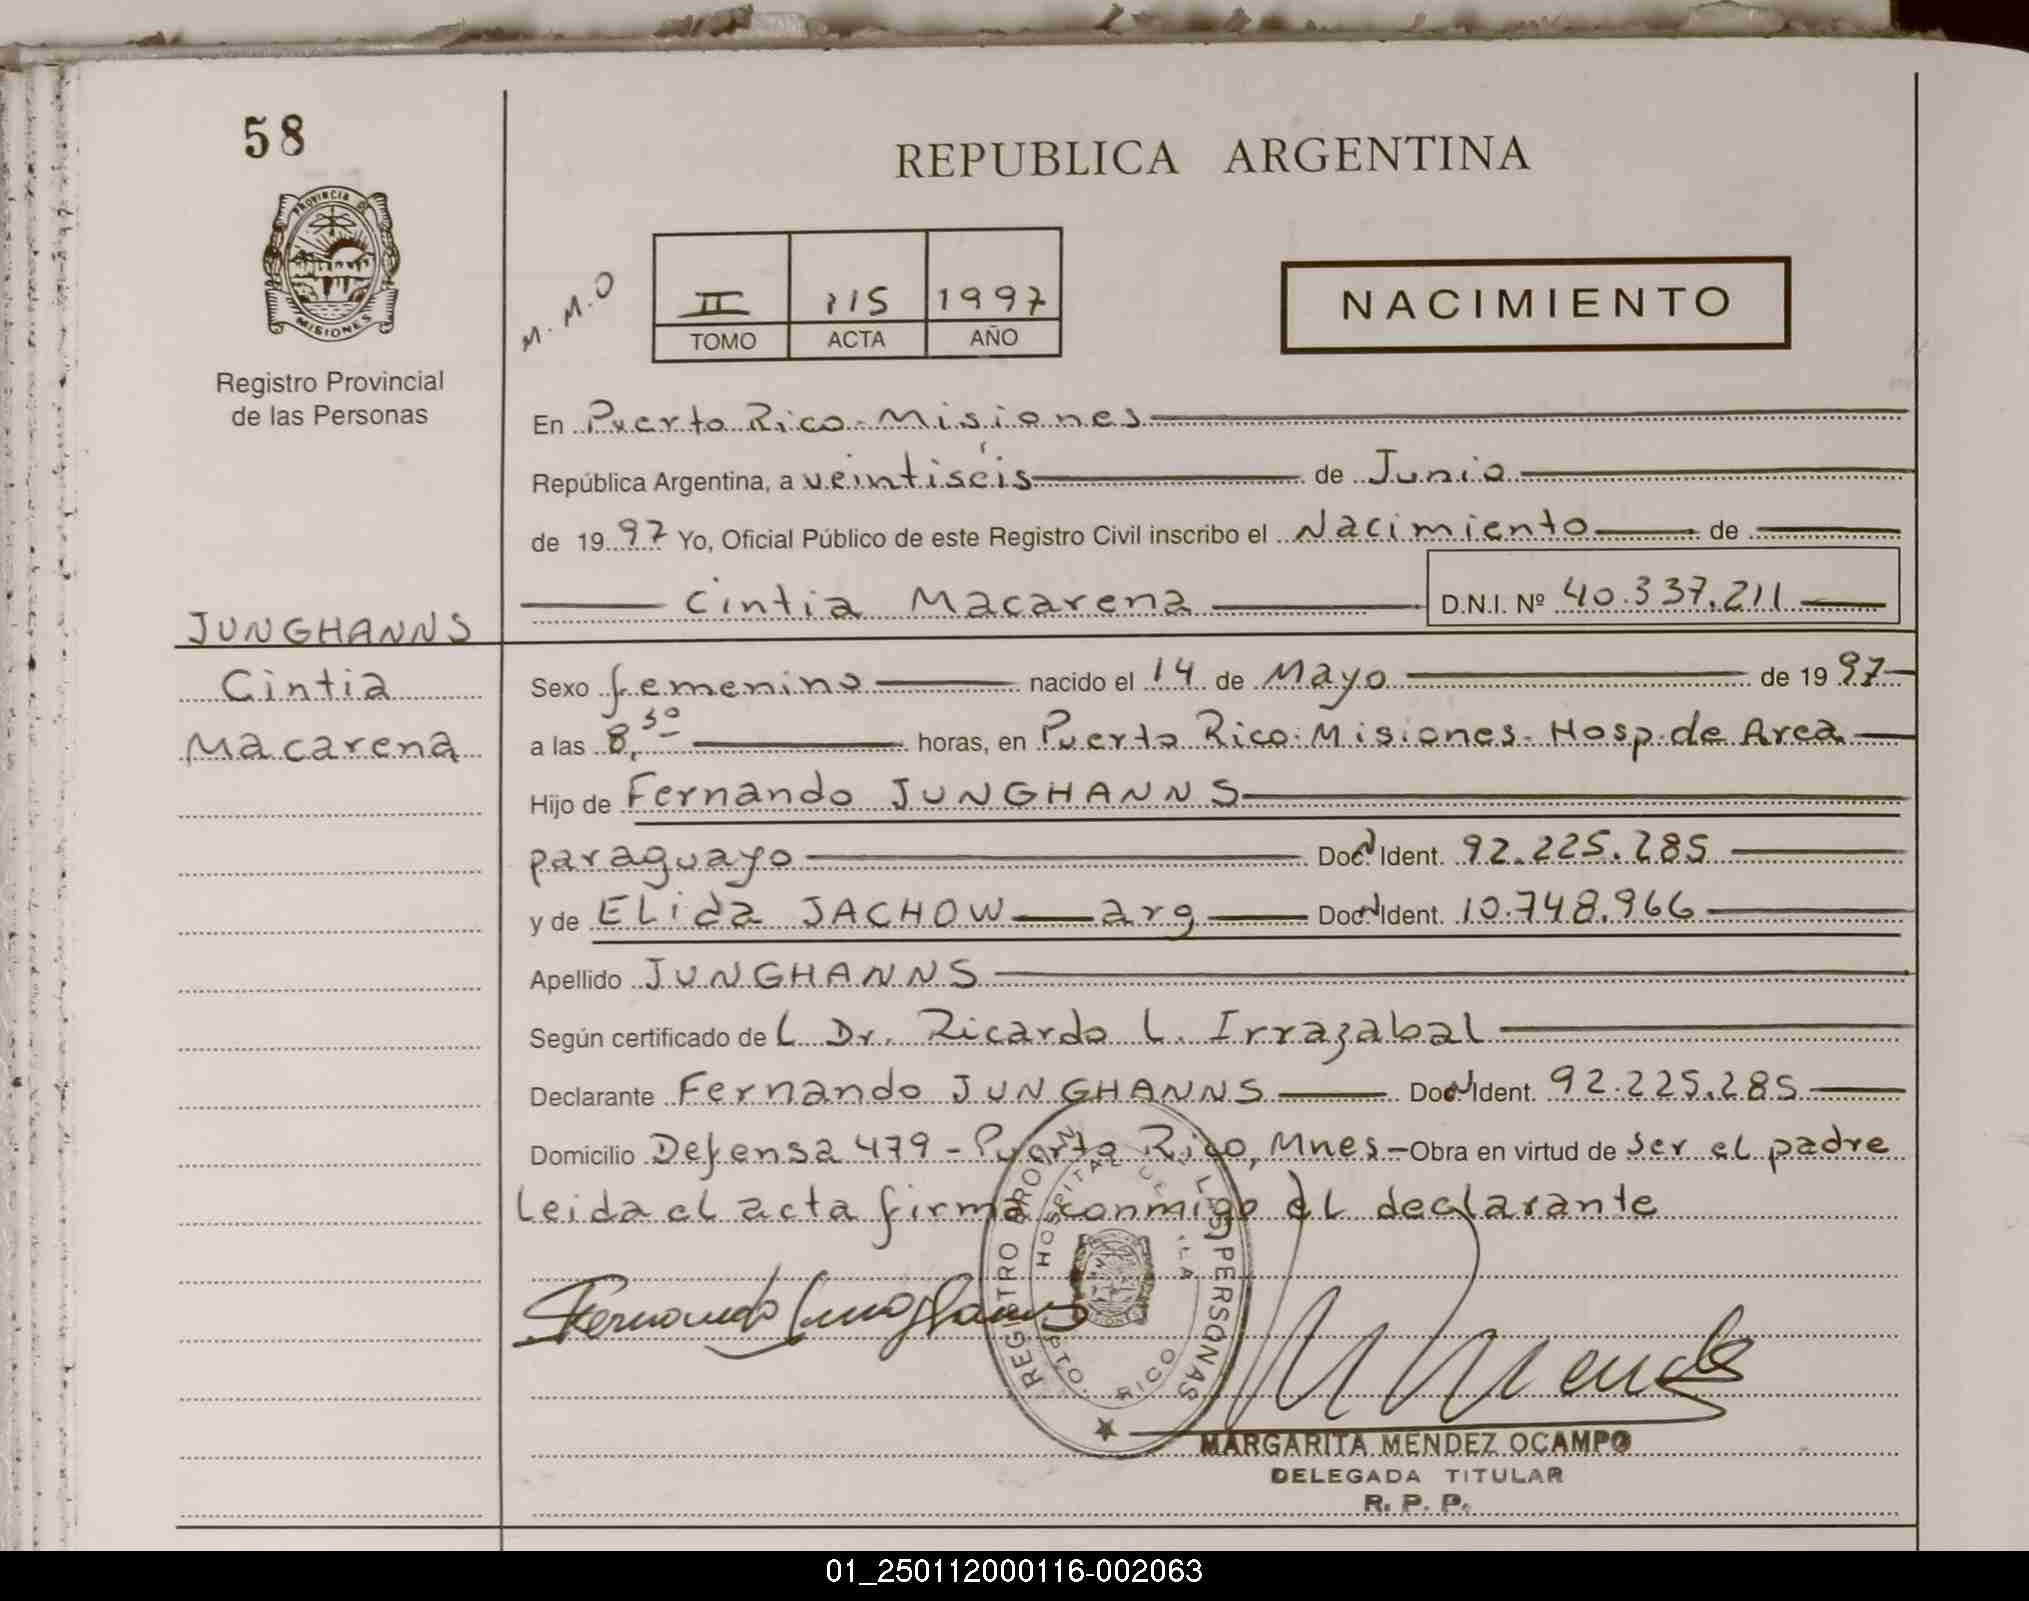 58
REPUBLICA ARGENTINA
PROVINCIA DE
MISIONES
M. M. O
II 115 1997
TOMO ACTA AÑO
NACIMIENTO
Registro Provincial
de las Personas
En Puerto Rico - Misiones
República Argentina, a veintiséis de Junio
de 1997 Yo, Oficial Público de este Registro Civil inscribo el Nacimiento de
Cintia Macarena D.N.I. Nº 40.337.211
JUNGHANNS
Cintia
Macarena
Sexo femenino nacido el 14 de Mayo de 1997
a las 8,30 horas, en Puerto Rico. Misiones. Hosp. de Area
Hijo de Fernando JUNGHANNS
paraguayo Doc. Ident. 92.225.285
y de ELida JACHOW arg Doc. Ident. 10.748.966
Apellido JUNGHANNS
Según certificado de L Dr. Ricardo L. Irrazabal
Declarante Fernando JUNGHANNS Doc. Ident. 92.225.285
Domicilio Defensa 479 - Puerto Rico, Mnes - Obra en virtud de ser el padre
Leida el acta firma conmigo el declarante
Fernando Junghanns
REGISTRO PROV. LAS PERSONAS
HOSPITAL
PTO. RICO
M Mendez
MARGARITA MENDEZ OCAMPO
DELEGADA TITULAR
R. P. P.
01_250112000116-002063